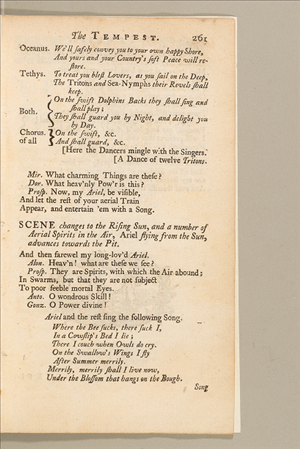 The TEMPEST. 261
Oceanus. We'll ſafely convey you to your own happy Shore,
And yours and your Country's ſoft Peace will re-
ſtore.
Tethys. To treat you bleſt Lovers, as you ſail on the Deep,
The Tritons and Sea-Nymphs their Revels ſhall
keep.
Both. On the ſwift Dolphins Backs they ſhall ſing and
ſhall play;
They ſhall guard you by Night, and delight you
by Day.
Chorus. On the ſwift, &c.
of all And ſhall guard, &c.
[Here the Dancers mingle with the Singers.
[A Dance of twelve Tritons.
Mir. What charming Things are theſe?
Dor. What heav'nly Pow'r is this?
Proſp. Now, my Ariel, be viſible,
And let the reſt of your aerial Train
Appear, and entertain 'em with a Song.
SCENE changes to the Riſing Sun, and a number of
Aerial Spirits in the Air, Ariel flying from the Sun,
advances towards the Pit.
And then farewel my long-lov'd Ariel.
Alon. Heav'n! what are theſe we ſee?
Proſp. They are Spirits, with which the Air abound;
In Swarms, but that they are not ſubject
To poor feeble mortal Eyes.
Anto. O wondrous Skill!
Gonz. O Power divine!
Ariel and the reſt ſing the following Song.
Where the Bee ſucks, there ſuck I,
In a Cowſlip's Bed I lie;
There I couch when Owls do cry.
On the Swallow's Wings I fly
After Summer merrily.
Merrily, merrily ſhall I live now,
Under the Bloſſom that hangs on the Bough.
Song